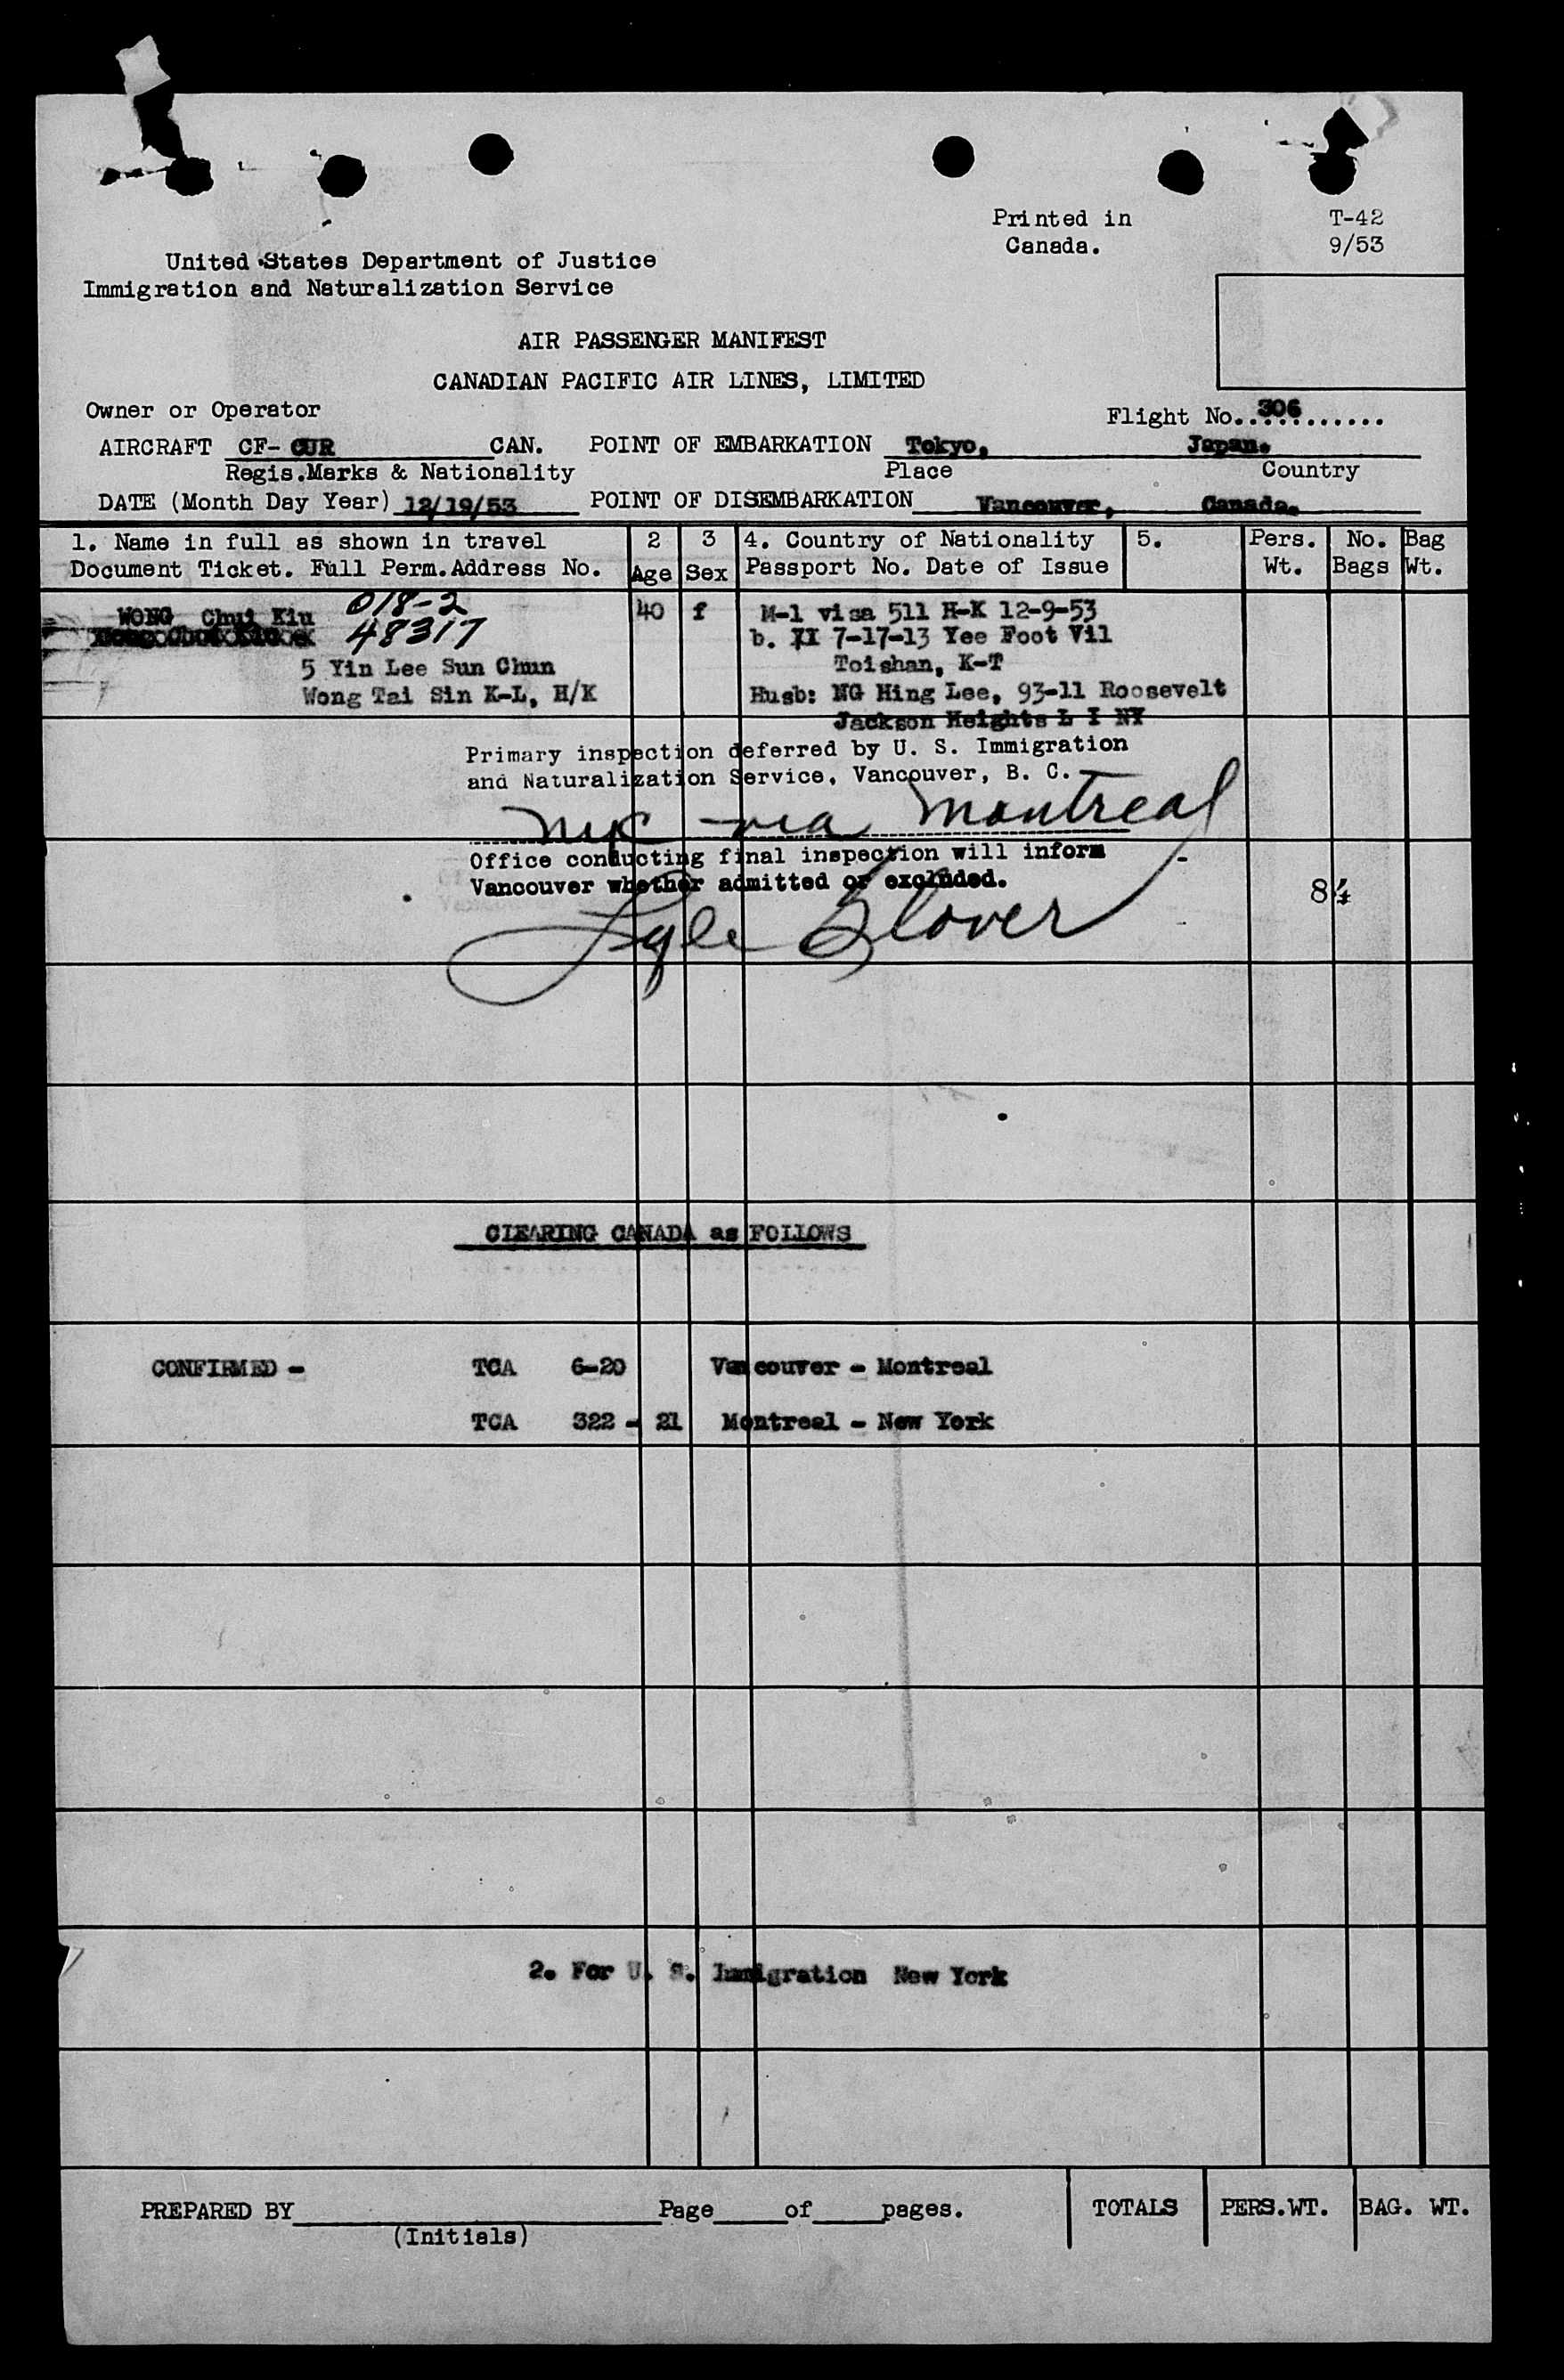 Printed in T-42
Canada. 9/53
United States Department of Justice
Immigration and Naturalization Service
AIR PASSENGER MANIFEST
CANADIAN PACIFIC AIR LINES, LIMITED
Owner or Operator Flight No. 306
AIRCRAFT CF- CUR CAN. POINT OF EMBARKATION Tokyo, Japan.
Regis.Marks & Nationality Place Country
DATE (Month Day Year) 12/19/53 POINT OF DISEMBARKATION Vancouver, Canada.
1. Name in full as shown in travel 2 3 4. Country of Nationality 5. Pers. No. Bag
Document Ticket. Full Perm.Address No. Age Sex Passport No. Date of Issue Wt. Bags Wt.
WONG Chui Kiu 018-2 40 f M-1 visa 511 H-K 12-9-53
48317 b. 7-17-13 Yee Foot Vil
5 Yin Lee Sun Chun Toishan, K-T
Wong Tai Sin K-L, H/K Husb: NG Hing Lee, 93-11 Roosevelt
Jackson Heights L I NY
Primary inspection deferred by U. S. Immigration
and Naturalization Service, Vancouver, B. C.
NYC via Montreal
Office conducting final inspection will inform
Vancouver whether admitted or excluded.
84
Lyle Glover
CLEARING CANADA as FOLLOWS
CONFIRMED - TCA 6-20 Vancouver - Montreal
TCA 322 - 21 Montreal - New York
2. For U. S. Immigration New York
PREPARED BY Page of pages. TOTALS PERS.WT. BAG. WT.
(Initials)